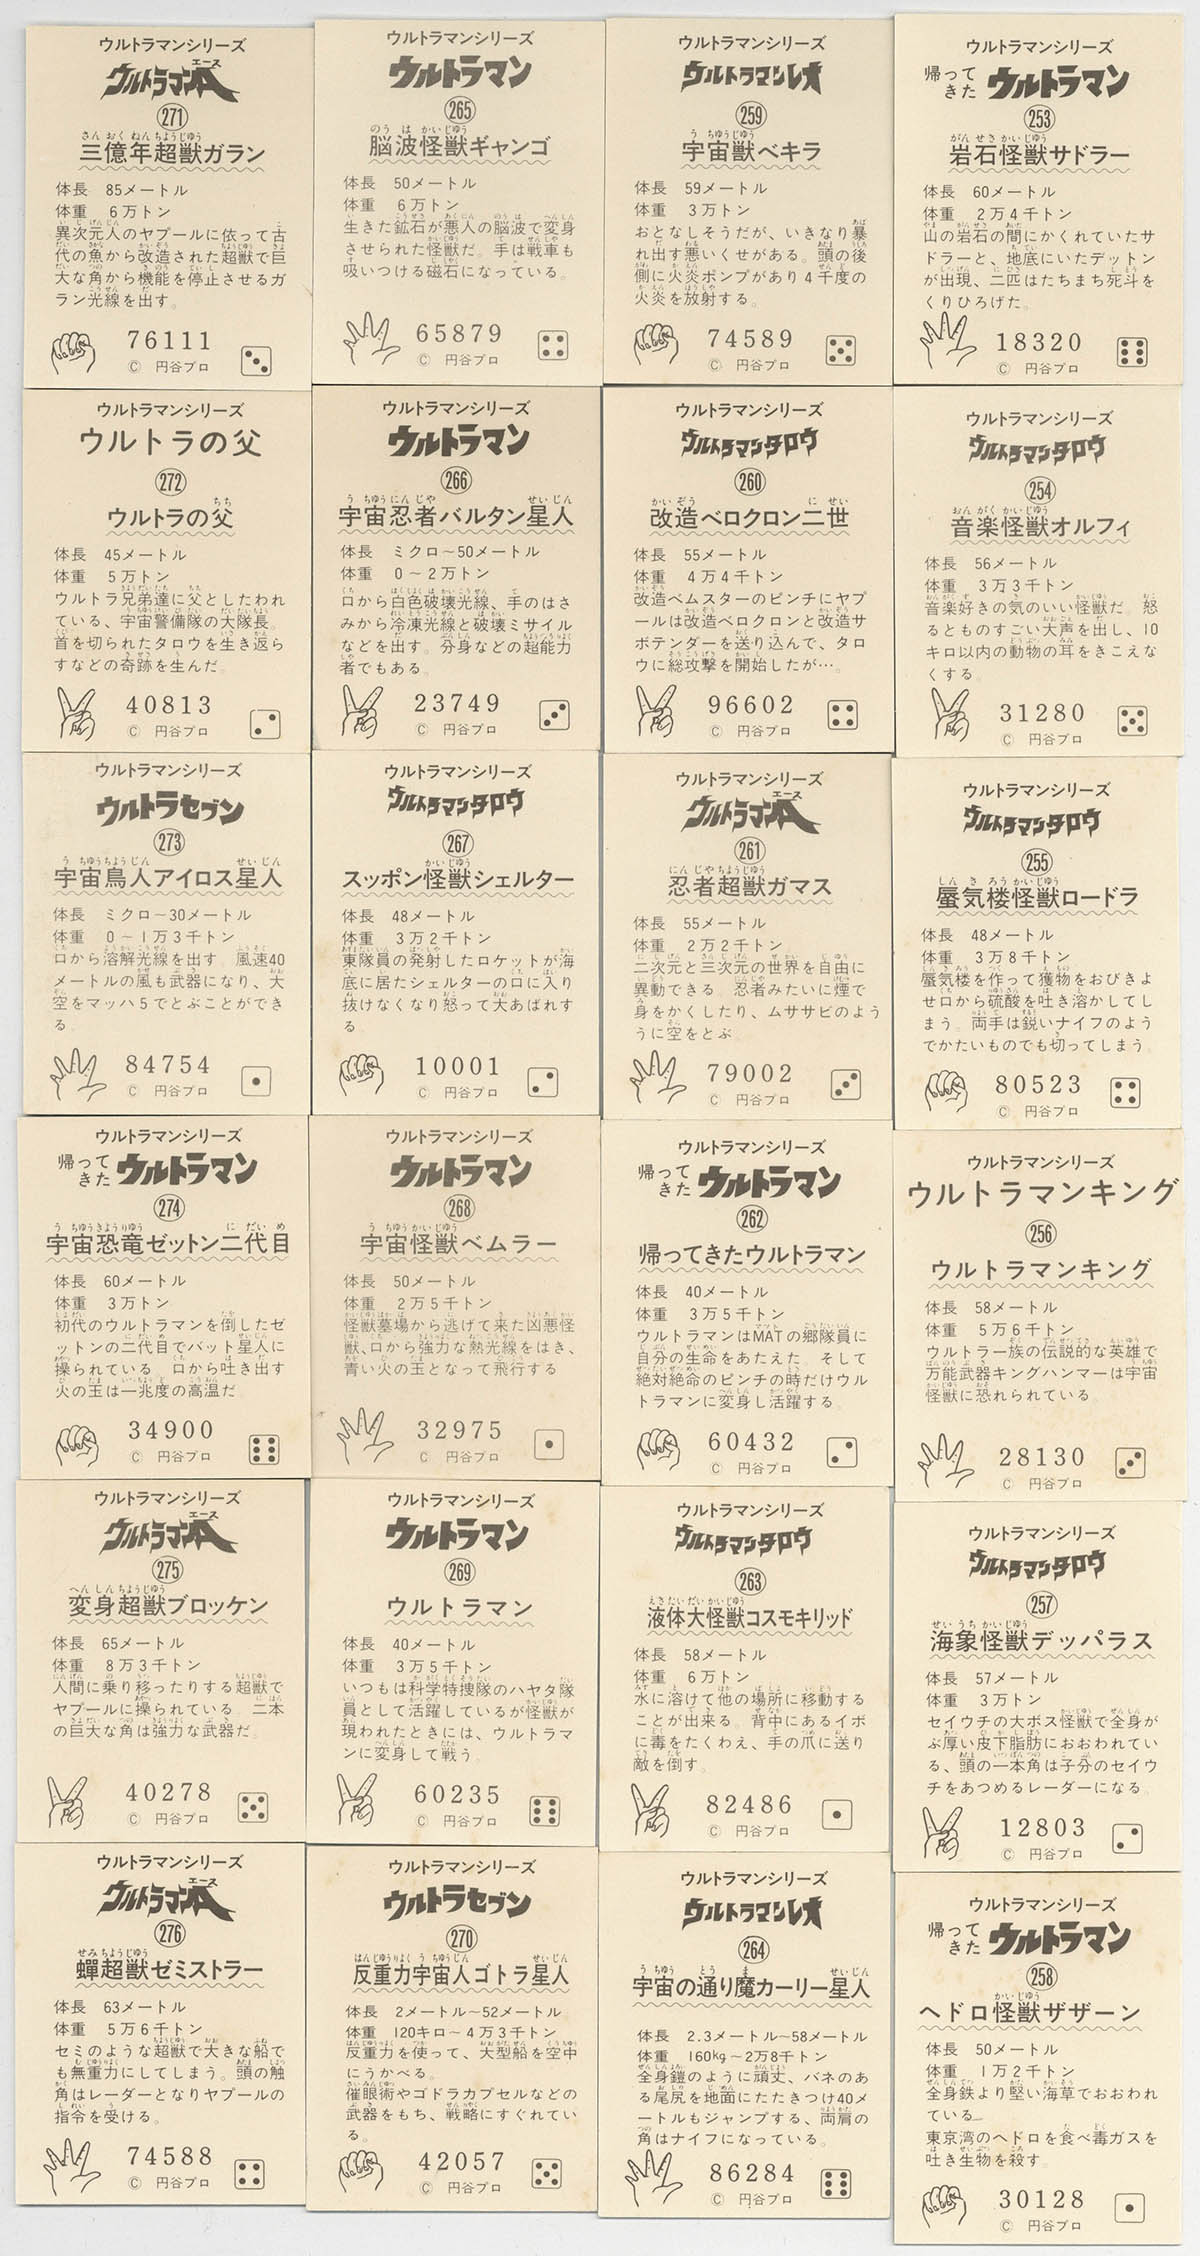 ウルトラマンシリーズ
ウルトラマンA
エース
271
三億年超獣ガラン
さんおくねんちょうじゅう
体長 85メートル
体重 6万トン
異次元人のヤプールに依って古
代の魚から改造された超獣で巨
大な角から機能を停止させるガ
ラン光線を出す。
76111
© 円谷プロ
ウルトラマンシリーズ
ウルトラの父
272
ウルトラの父
体長 45メートル
体重 5万トン
ウルトラ兄弟達に父としたわれ
ている、宇宙警備隊の大隊長。
首を切られたタロウを生き返ら
すなどの奇跡を生んだ。
40813
© 円谷プロ
ウルトラマンシリーズ
ウルトラセブン
273
宇宙鳥人アイロス星人
体長 ミクロ~30メートル
体重 0~1万3千トン
口から溶解光線を出す。風速40
メートルの風も武器になり、大
空をマッハ5でとぶことができ
る。
84754
© 円谷プロ
ウルトラマンシリーズ
帰ってきた ウルトラマン
274
宇宙恐竜ゼットン二代目
体長 60メートル
体重 3万トン
初代のウルトラマンを倒したゼ
ットンの二代目でバット星人に
操られている。口から吐き出す
火の玉は一兆度の高温だ。
34900
© 円谷プロ
ウルトラマンシリーズ
ウルトラマンA
エース
275
変身超獣ブロッケン
体長 65メートル
体重 8万3千トン
人間に乗り移ったりする超獣で
ヤプールに操られている。二本
の巨大な角は強力な武器だ。
40278
© 円谷プロ
ウルトラマンシリーズ
ウルトラマンA
エース
276
蟬超獣ゼミストラー
体長 63メートル
体重 5万6千トン
セミのような超獣で大きな船で
も無重力にしてしまう。頭の触
角はレーダーとなりヤプールの
指令を受ける。
74588
© 円谷プロ
ウルトラマンシリーズ
ウルトラマン
265
脳波怪獣ギャンゴ
体長 50メートル
体重 6万トン
生きた鉱石が悪人の脳波で変身
させられた怪獣だ。手は戦車も
吸いつける磁石になっている。
65879
© 円谷プロ
ウルトラマンシリーズ
ウルトラマン
266
宇宙忍者バルタン星人
体長 ミクロ~50メートル
体重 0~2万トン
口から白色破壊光線、手のはさ
みから冷凍光線と破壊ミサイル
などを出す。分身などの超能力
者でもある。
23749
© 円谷プロ
ウルトラマンシリーズ
ウルトラマンタロウ
267
スッポン怪獣シェルター
体長 48メートル
体重 3万2千トン
東隊員の発射したロケットが海
底に居たシェルターの口に入り
抜けなくなり怒って大あばれす
る。
10001
© 円谷プロ
ウルトラマンシリーズ
ウルトラマン
268
宇宙怪獣ベムラー
体長 50メートル
体重 2万5千トン
怪獣墓場から逃げて来た凶悪怪
獣、口から強力な熱光線をはき、
青い火の玉となって飛行する
32975
© 円谷プロ
ウルトラマンシリーズ
ウルトラマン
269
ウルトラマン
体長 40メートル
体重 3万5千トン
いつもは科学特捜隊のハヤタ隊
員として活躍しているが怪獣が
現われたときには、ウルトラマ
ンに変身して戦う。
60235
© 円谷プロ
ウルトラマンシリーズ
ウルトラセブン
270
反重力宇宙人ゴトラ星人
体長 2メートル~52メートル
体重 120キロ~4万3千トン
反重力を使って、大型船を空中
にうかべる。
催眠術やゴドラカプセルなどの
武器をもち、戦略にすぐれてい
る。
42057
© 円谷プロ
ウルトラマンシリーズ
ウルトラマンレオ
259
宇宙獣ベキラ
体長 59メートル
体重 3万トン
おとなしそうだが、いきなり暴
れ出す悪いくせがある。頭の後
側に火炎ポンプがあり4千度の
火炎を放射する。
74589
© 円谷プロ
ウルトラマンシリーズ
ウルトラマンタロウ
260
改造ベロクロン二世
体長 55メートル
体重 4万4千トン
改造ベムスターのピンチにヤプ
ールは改造ベロクロンと改造サ
ボテンダーを送り込んで、タロ
ウに総攻撃を開始したが…。
96602
© 円谷プロ
ウルトラマンシリーズ
ウルトラマンA
エース
261
忍者超獣ガマス
体長 55メートル
体重 2万2千トン
二次元と三次元の世界を自由に
異動できる。忍者みたいに煙で
身をかくしたり、ムササビのよう
うに空をとぶ。
79002
© 円谷プロ
ウルトラマンシリーズ
帰ってきた ウルトラマン
262
帰ってきたウルトラマン
体長 40メートル
体重 3万5千トン
ウルトラマンはMATの郷隊員に
自分の生命をあたえた。そして
絶対絶命のピンチの時だけウル
トラマンに変身し活躍する。
60432
© 円谷プロ
ウルトラマンシリーズ
ウルトラマンタロウ
263
液体大怪獣コスモキリッド
体長 58メートル
体重 6万トン
水に溶けて他の場所に移動する
ことが出来る。背中にあるイボ
に毒をたくわえ、手の爪に送り
敵を倒す。
82486
© 円谷プロ
ウルトラマンシリーズ
ウルトラマンレオ
264
宇宙の通り魔カーリー星人
体長 2.3メートル~58メートル
体重 160kg~2万8千トン
全身鎧のように頑丈、バネのあ
る尾尻を地面にたたきつけ40メ
ートルもジャンプする、両肩の
角はナイフになっている。
86284
© 円谷プロ
ウルトラマンシリーズ
帰ってきた ウルトラマン
253
岩石怪獣サドラー
体長 60メートル
体重 2万4千トン
山の岩石の間にかくれていたサ
ドラーと、地底にいたデットン
が出現、二匹はたちまち死斗を
くりひろげた。
18320
© 円谷プロ
ウルトラマンシリーズ
ウルトラマンタロウ
254
音楽怪獣オルフィ
体長 56メートル
体重 3万3千トン
音楽好きの気のいい怪獣だ。怒
るとものすごい大声を出し、10
キロ以内の動物の耳をきこえな
くする。
31280
© 円谷プロ
ウルトラマンシリーズ
ウルトラマンタロウ
255
蜃気楼怪獣ロードラ
体長 48メートル
体重 3万8千トン
蜃気楼を作って獲物をおびきよ
せ口から硫酸を吐き溶かしてし
まう。両手は鋭いナイフのよう
でかたいものでも切ってしまう。
80523
© 円谷プロ
ウルトラマンシリーズ
ウルトラマンキング
256
ウルトラマンキング
体長 58メートル
体重 5万6千トン
ウルトラ一族の伝説的な英雄で
万能武器キングハンマーは宇宙
怪獣に恐れられている。
28130
© 円谷プロ
ウルトラマンシリーズ
ウルトラマンタロウ
257
海象怪獣デッパラス
体長 57メートル
体重 3万トン
セイウチの大ボス怪獣で全身が
ぶ厚い皮下脂肪におおわれてい
る、頭の一本角は子分のセイウ
チをあつめるレーダーになる。
12803
© 円谷プロ
ウルトラマンシリーズ
帰ってきた ウルトラマン
258
ヘドロ怪獣ザザーン
体長 50メートル
体重 1万2千トン
全身鉄より堅い海草でおおわれ
ている
東京湾のヘドロを食べ毒ガスを
吐き生物を殺す。
30128
© 円谷プロ